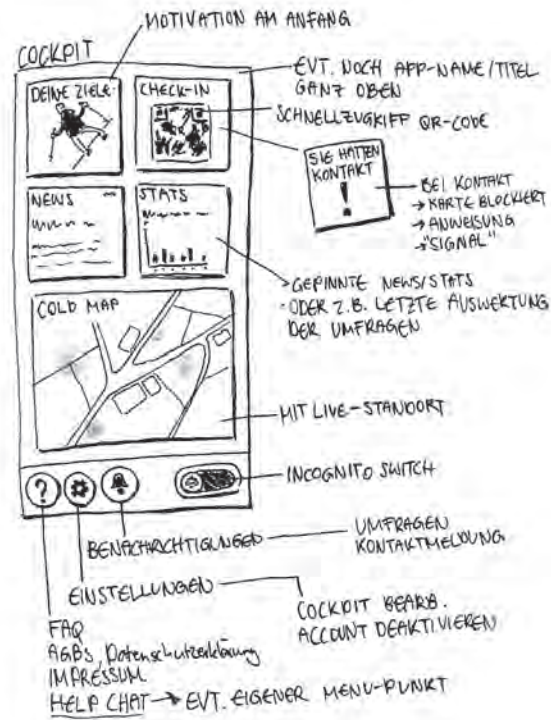 MOTIVATION AM ANFANG
COCKPIT
DEINE ZIELE
CHECK-IN
EVT. NOCH APP-NAME/TITEL
GANZ OBEN
SCHNELLZUGRIFF QR-CODE
SIE HATTEN
KONTAKT
!
BEI KONTAKT
→ KARTE BLOCKIERT
→ ANWEISUNG
→ "SIGNAL"
NEWS
STATS
GEPINNTE NEWS/STATS
ODER Z.B. LETZTE AUSWERTUNG
DER UMFRAGEN
COLD MAP
MIT LIVE-STANDORT
?
INCOGNITO SWITCH
BENACHRICHTIGUNGEN
UMFRAGEN
KONTAKTMELDUNG
EINSTELLUNGEN
COCKPIT BEARB.
ACCOUNT DEAKTIVIEREN
FAQ
AGBs, Datenschutzerklärung
IMPRESSUM
HELP CHAT → EVT. EIGENER MENU-PUNKT